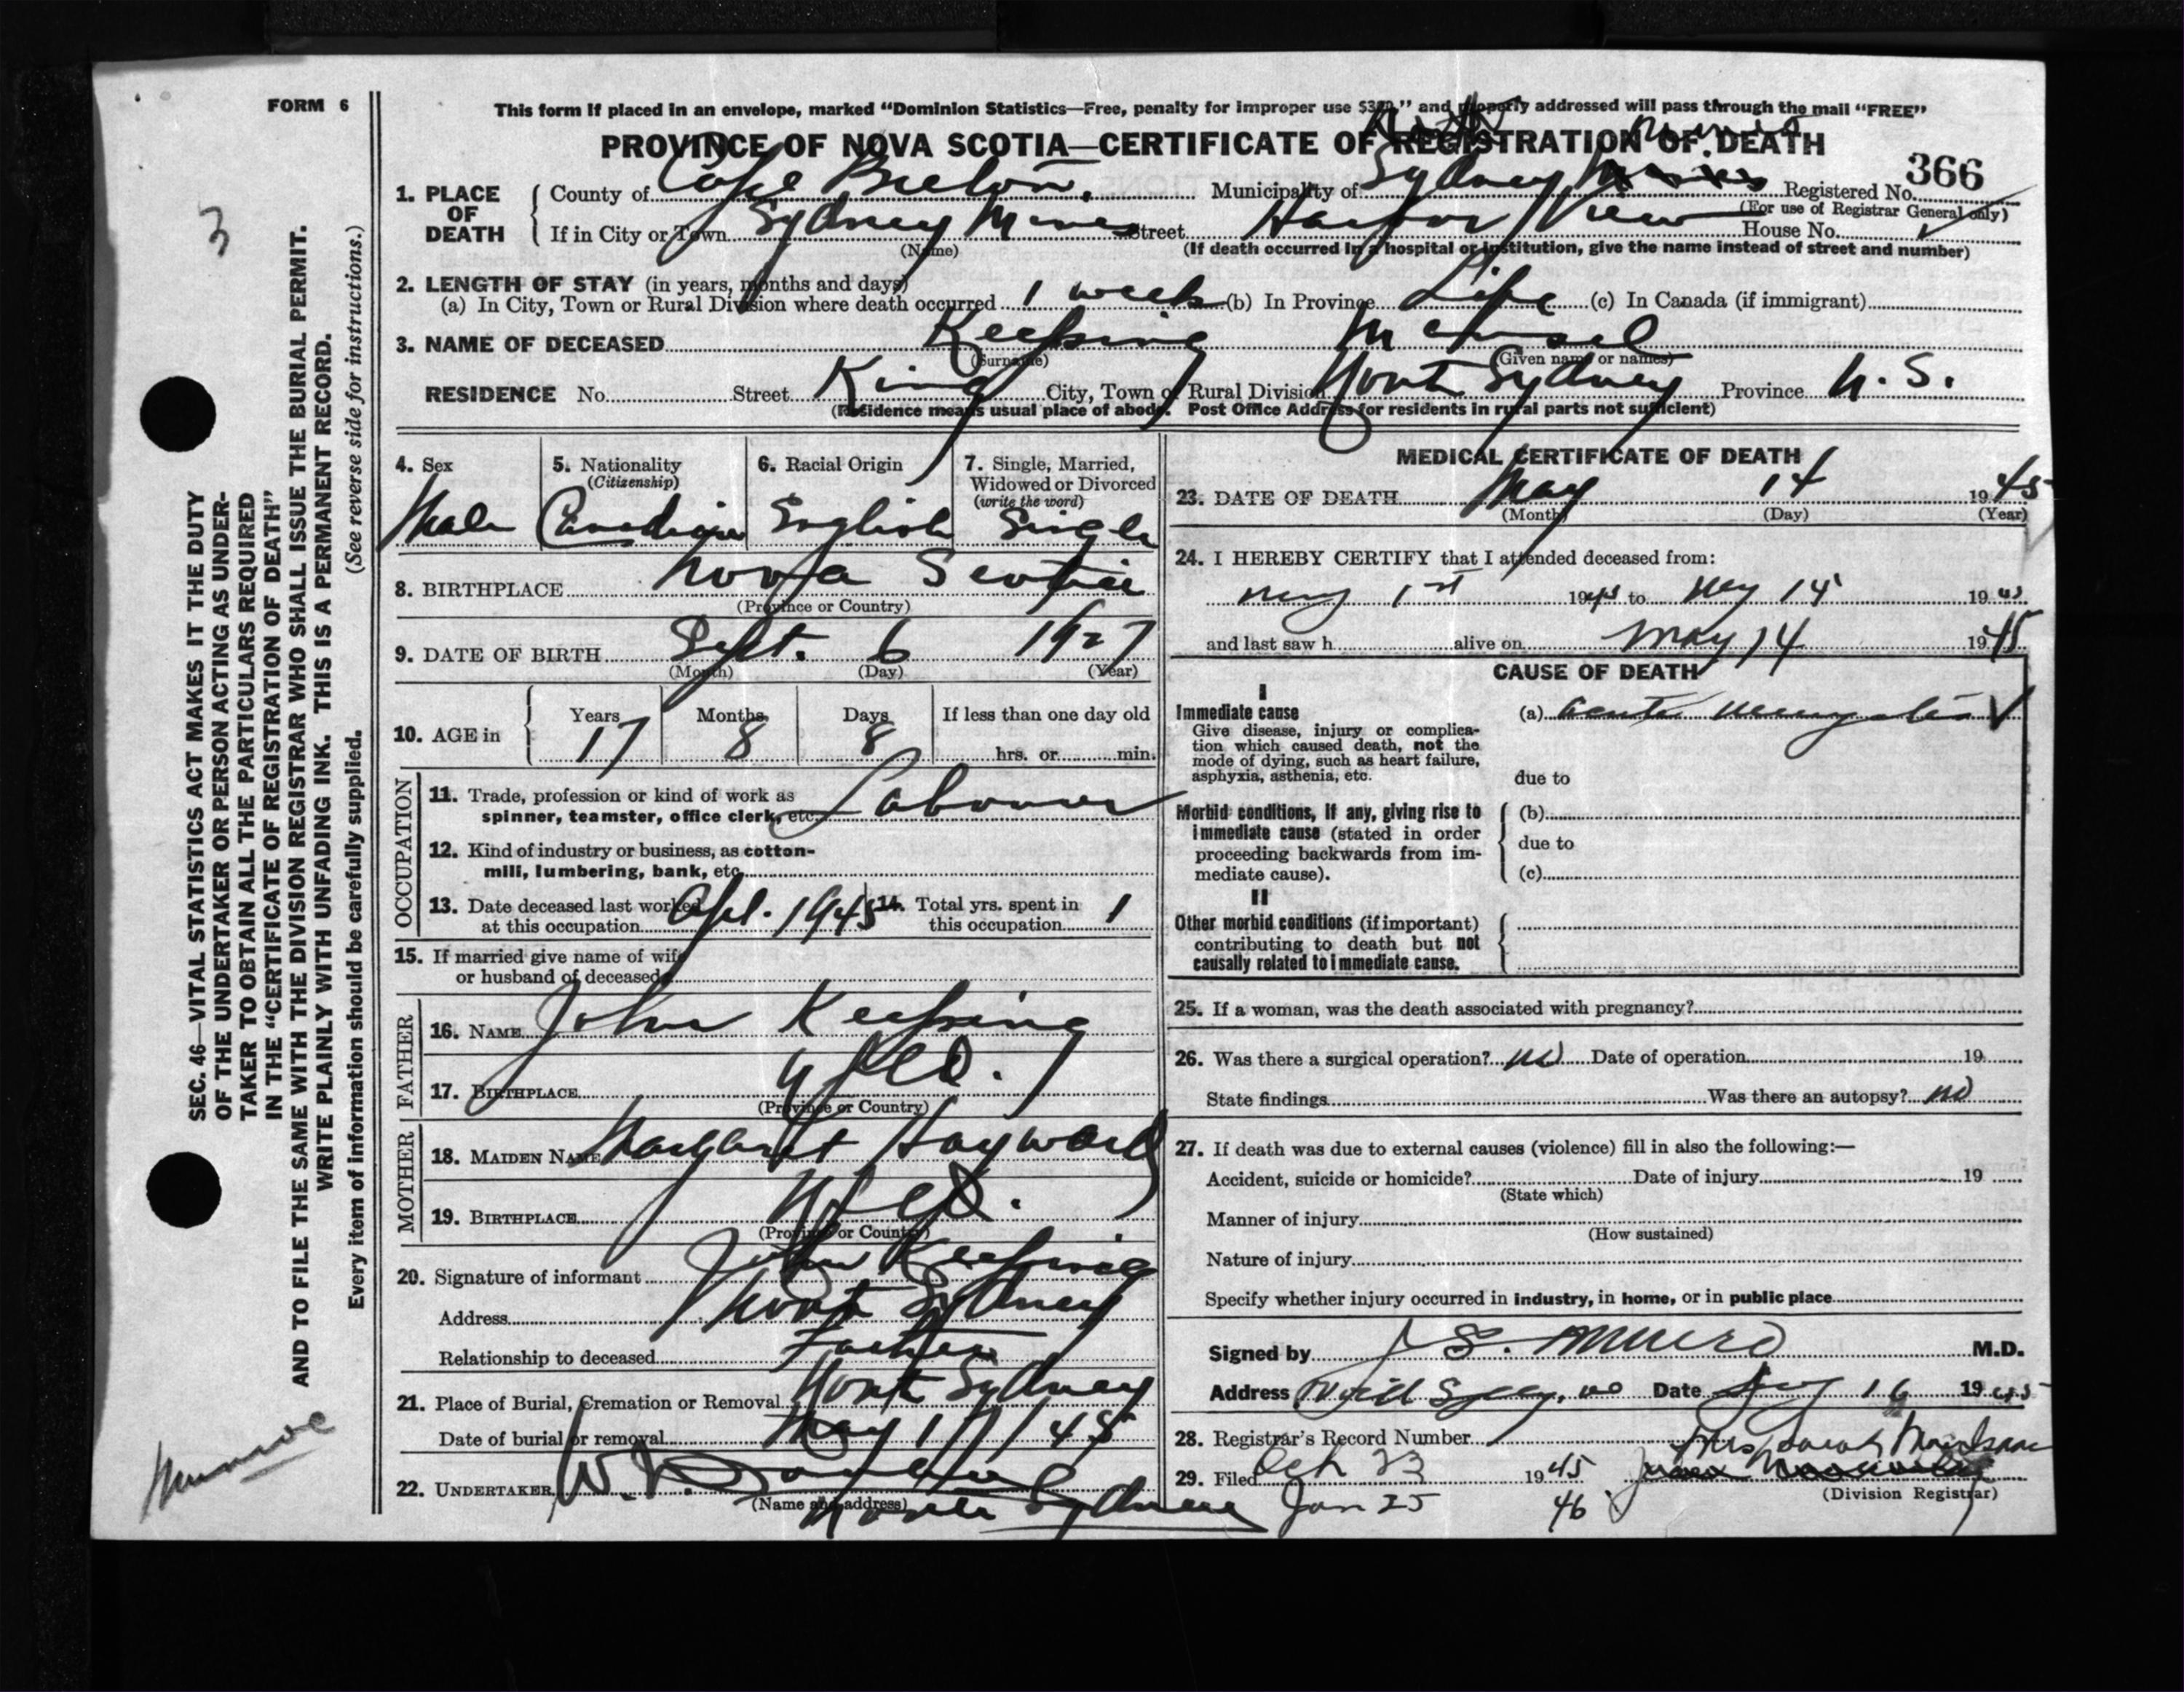 FORM 6
This form if placed in an envelope, marked "Dominion Statistics—Free, penalty for improper use $300" and properly addressed will pass through the mail "FREE"
PROVINCE OF NOVA SCOTIA—CERTIFICATE OF REGISTRATION OF DEATH
366
1. PLACE OF DEATH
County of Cape Breton. Municipality of Sydney Registered No.
(For use of Registrar General only)
If in City or Town Sydney Mines Street Harbor View House No.
(Name) (If death occurred in a hospital or institution, give the name instead of street and number)
2. LENGTH OF STAY (in years, months and days)
(a) In City, Town or Rural Division where death occurred 1 week (b) In Province Life (c) In Canada (if immigrant)
3. NAME OF DECEASED Keeping Michael
(Surname) (Given name or names)
RESIDENCE No. Street King City, Town or Rural Division North Sydney Province N. S.
(Residence means usual place of abode. Post Office Address for residents in rural parts not sufficient)
4. Sex 5. Nationality (Citizenship) 6. Racial Origin 7. Single, Married, Widowed or Divorced (write the word)
Male Canadian English Single
8. BIRTHPLACE Nova Scotia
(Province or Country)
9. DATE OF BIRTH Sept. 6 1927
(Month) (Day) (Year)
10. AGE in Years Months Days If less than one day old
17 8 8 hrs. or min.
OCCUPATION
11. Trade, profession or kind of work as
spinner, teamster, office clerk, etc. Labourer
12. Kind of industry or business, as cotton-
mill, lumbering, bank, etc.
13. Date deceased last worked at this occupation Apl. 1945 14. Total yrs. spent in this occupation 1
15. If married give name of wife
or husband of deceased
FATHER
16. NAME John Keeping
17. BIRTHPLACE Nfld.
(Province or Country)
MOTHER
18. MAIDEN NAME Margaret Hayward
19. BIRTHPLACE Nfld.
(Province or Country)
20. Signature of informant John Keeping
Address North Sydney
Relationship to deceased Father
21. Place of Burial, Cremation or Removal North Sydney
Date of burial or removal May 17 / 45
22. UNDERTAKER W.
(Name and address)
North Sydney
MEDICAL CERTIFICATE OF DEATH
23. DATE OF DEATH May 14 1945
(Month) (Day) (Year)
24. I HEREBY CERTIFY that I attended deceased from:
May 1st 1945 to May 14 1945
and last saw h alive on May 14 1945
CAUSE OF DEATH
I
Immediate cause (a) Acute Meningitis
Give disease, injury or complica-
tion which caused death, not the
mode of dying, such as heart failure,
asphyxia, asthenia, etc. due to
Morbid conditions, if any, giving rise to (b)
immediate cause (stated in order due to
proceeding backwards from im-
mediate cause). (c)
II
Other morbid conditions (if important)
contributing to death but not
causally related to immediate cause.
25. If a woman, was the death associated with pregnancy?
26. Was there a surgical operation? No Date of operation 19
State findings Was there an autopsy? No
27. If death was due to external causes (violence) fill in also the following:—
Accident, suicide or homicide? Date of injury 19
(State which)
Manner of injury
(How sustained)
Nature of injury
Specify whether injury occurred in industry, in home, or in public place
Signed by J S. Munro M.D.
Address Date 16 1945
28. Registrar's Record Number
29. Filed Oct 23 1945 Mrs Sarah
(Division Registrar)
Jan 25 46
SEC. 46—VITAL STATISTICS ACT MAKES IT THE DUTY
OF THE UNDERTAKER OR PERSON ACTING AS UNDER-
TAKER TO OBTAIN ALL THE PARTICULARS REQUIRED
IN THE "CERTIFICATE OF REGISTRATION OF DEATH"
AND TO FILE THE SAME WITH THE DIVISION REGISTRAR WHO SHALL ISSUE THE BURIAL PERMIT.
WRITE PLAINLY WITH UNFADING INK. THIS IS A PERMANENT RECORD.
Every item of information should be carefully supplied. (See reverse side for instructions.)
3
Munroe